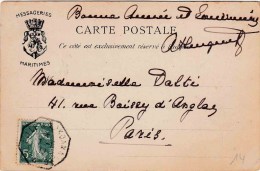 MESSAGERIES
MARITIMES
Bonne Année et
CARTE POSTALE
Ce côté est exclusivement réservé à
Mademoiselle Dalté
41. rue Boissy d'Anglas
Paris.